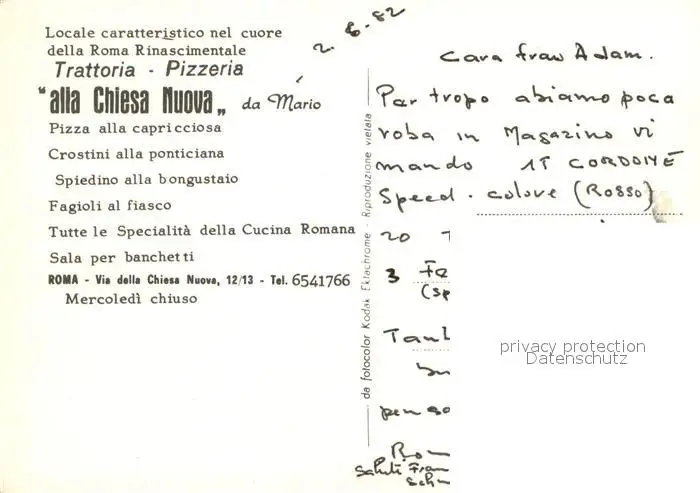 Locale caratteristico nel cuore
della Roma Rinascimentale
Trattoria - Pizzeria
"alla Chiesa Nuova„ da Mario
Pizza alla capricciosa
Crostini alla ponticiana
Spiedino alla bongustaio
Fagioli al fiasco
Tutte le Specialità della Cucina Romana
Sala per banchetti
ROMA - Via della Chiesa Nuova, 12/13 - Tel. 6541766
Mercoledì chiuso
da fotocolor Kodak Ektachrome - Riproduzione vietata
2. 6. 82
Cara frau Adam.
Par tropo abiamo poca
roba in Magazino vi
mando 15 CORDONÉ
Speed. colore (Rosso)
20
3 Fe
(sp
Tant
penso
Rom
Saluti Fran
Schn
privacy protection
Datenschutz